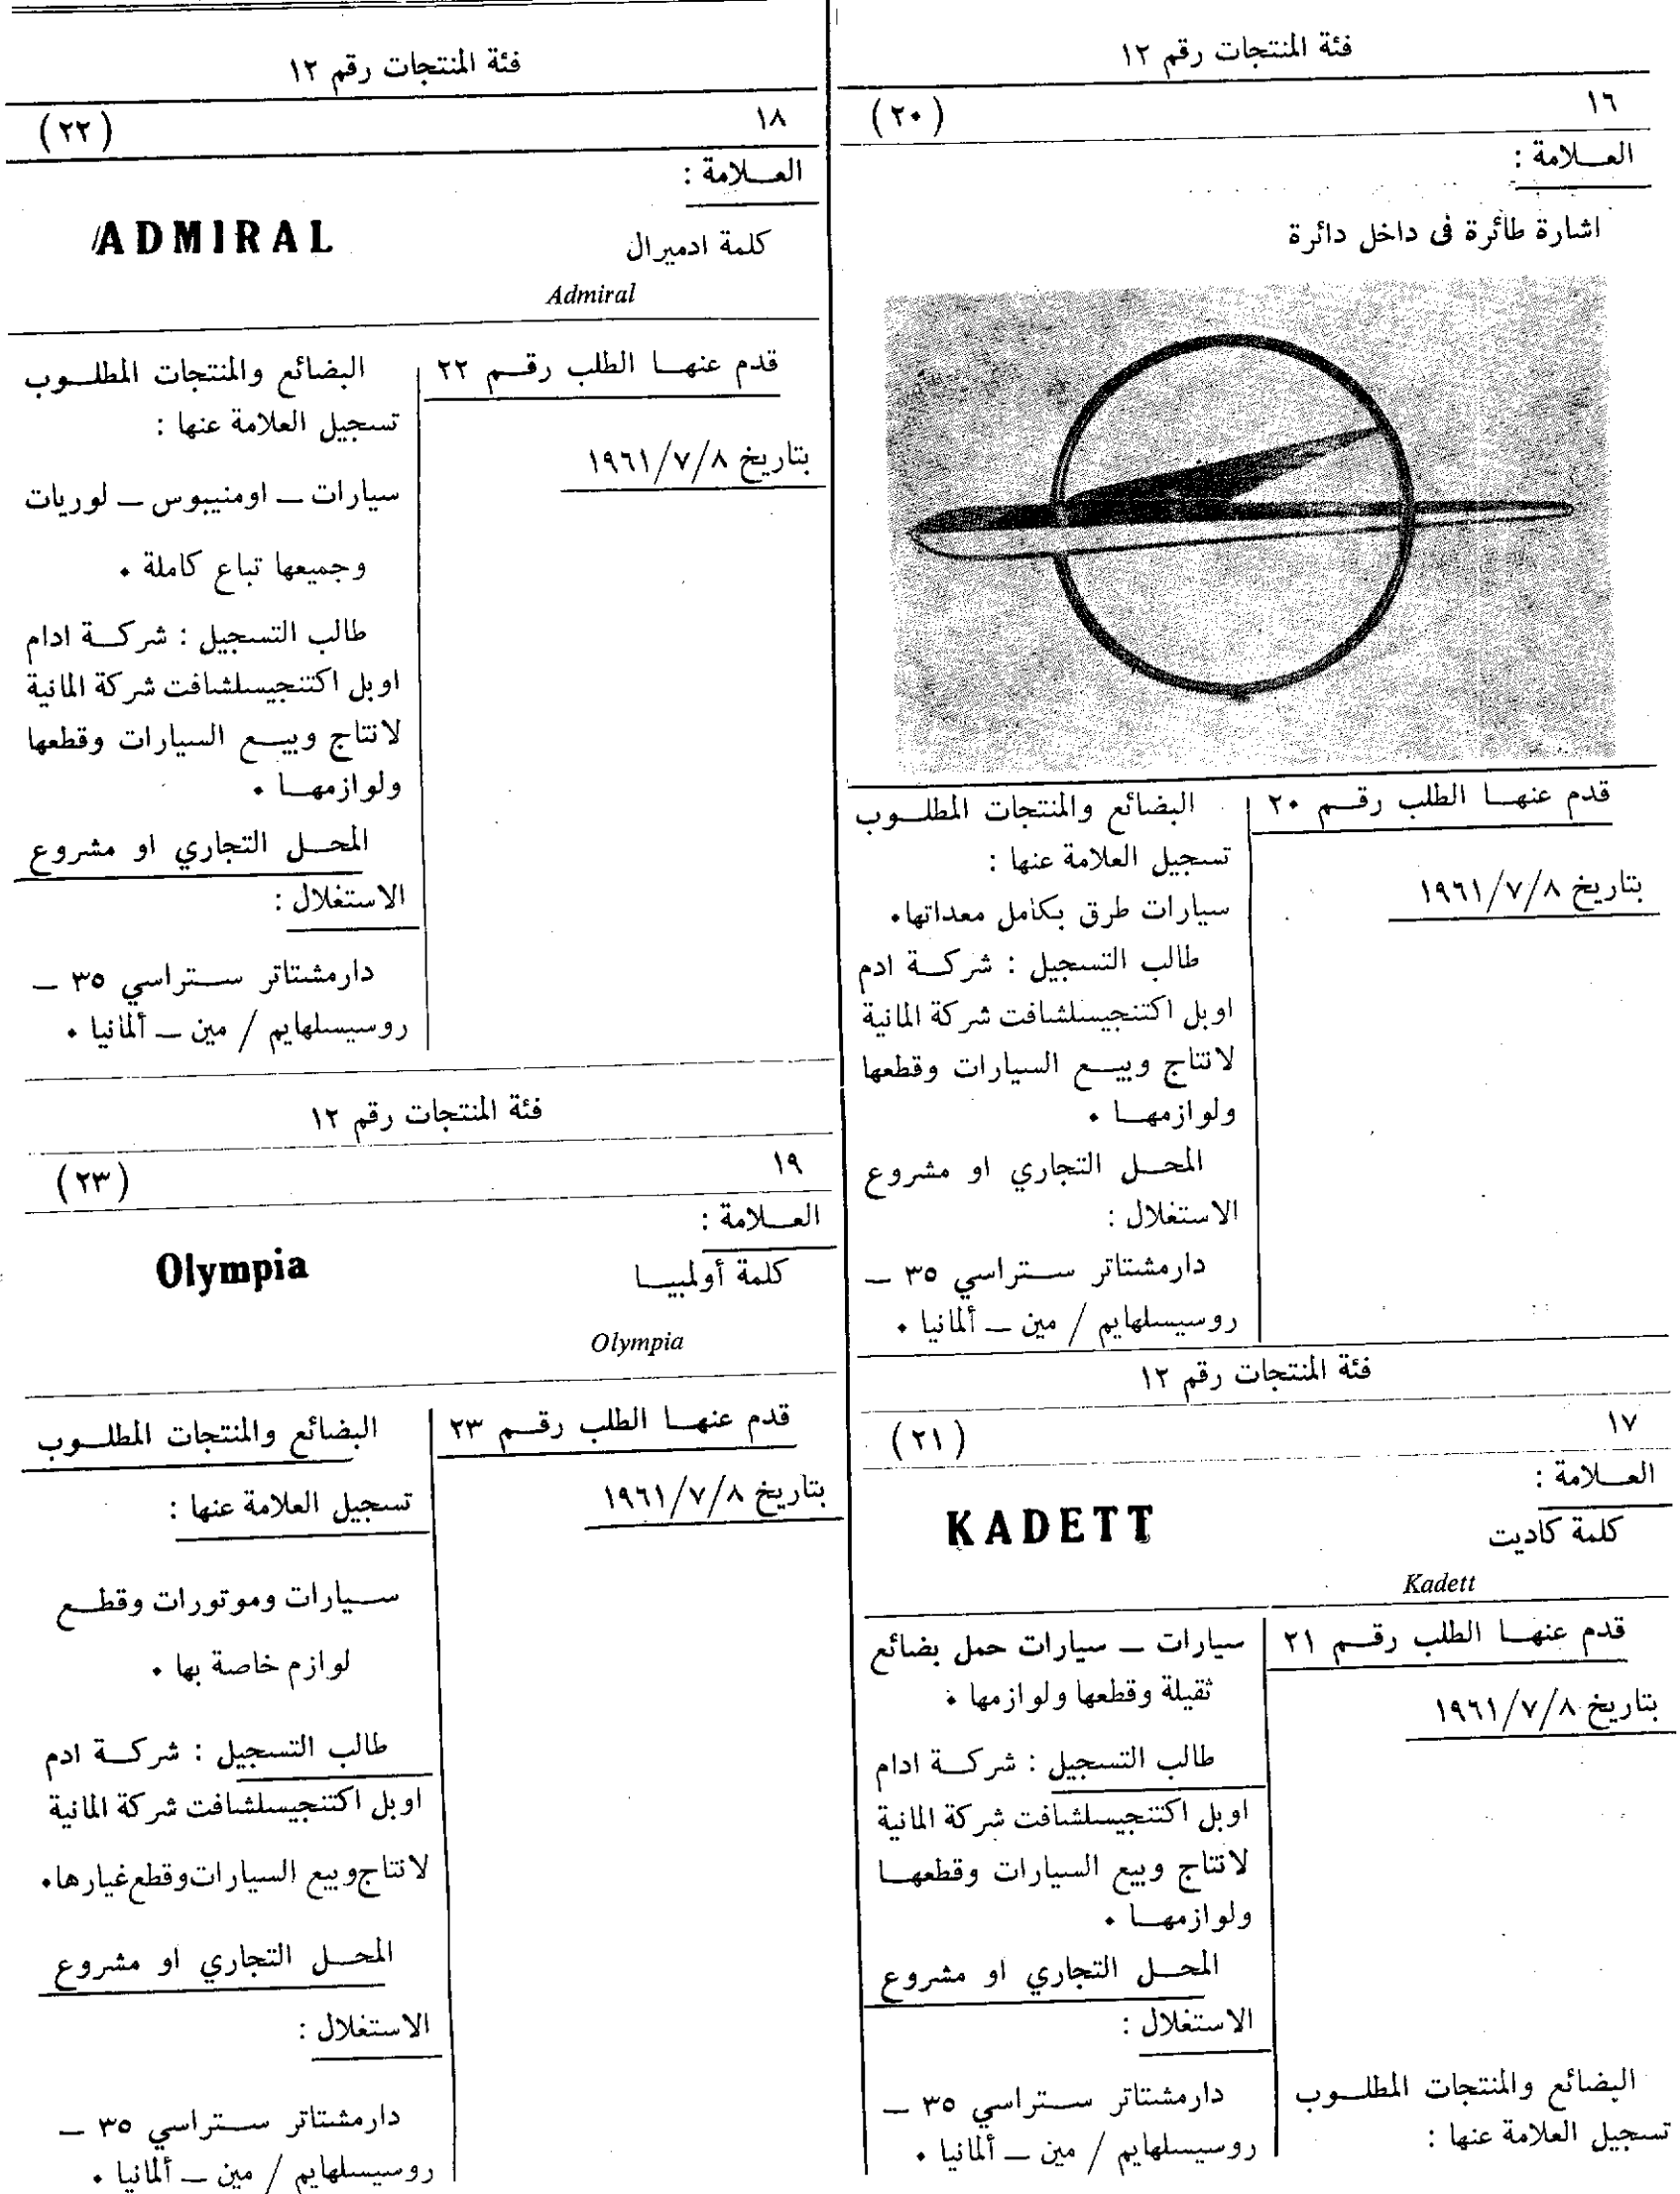 فئة المنتجات رقم ١٢
١٦ (٢٠)
العـــلامة :
اشارة طائرة فى داخل دائرة
قدم عنهـــا الطلب رقــم ٢٠
بتاريخ ١٩٦١/٧/٨
البضائع والمنتجات المطلــوب
تسجيل العلامة عنها :
سيارات طرق بكامل معداتها٠
طالب التسجيل : شركــة ادم
اوبل اكتنجيسلشافت شركة المانية
لانتاج وبيــع السيارات وقطعها
ولوازمهــا ٠
المحــل التجاري او مشروع
الاستغلال :
دارمشتاتر ســتراسي ٣٥ ــ
روسيسلهايم / مين ــ ألمانيا ٠
فئة المنتجات رقم ١٢
١٧ (٢١)
العـــلامة :
كلمة كاديت KADETT
Kadett
قدم عنهـــا الطلب رقــم ٢١
بتاريخ ١٩٦١/٧/٨
البضائع والمنتجات المطلــوب
تسجيل العلامة عنها :
سيارات ــ سيارات حمل بضائع
ثقيلة وقطعها ولوازمها ٠
طالب التسجيل : شركــة ادام
اوبل اكتنجيسلشافت شركة المانية
لانتاج وبيع السيارات وقطعهــا
ولوازمهــا ٠
المحــل التجاري او مشروع
الاستغلال :
دارمشتاتر ســتراسي ٣٥ ــ
روسيسلهايم / مين ــ ألمانيا ٠
فئة المنتجات رقم ١٢
١٨ (٢٢)
العـــلامة :
كلمة ادميرال ADMIRAL
Admiral
قدم عنهـــا الطلب رقــم ٢٢
بتاريخ ١٩٦١/٧/٨
البضائع والمنتجات المطلــوب
تسجيل العلامة عنها :
سيارات ــ اومنيبوس ــ لوريات
وجميعها تباع كاملة ٠
طالب التسجيل : شركــة ادام
اوبل اكتنجيسلشافت شركة المانية
لانتاج وبيــع السيارات وقطعها
ولوازمهــا ٠
المحــل التجاري او مشروع
الاستغلال :
دارمشتاتر ســتراسي ٣٥ ــ
روسيسلهايم / مين ــ ألمانيا ٠
فئة المنتجات رقم ١٢
١٩ (٢٣)
العـــلامة :
كلمة أولمبيــا Olympia
Olympia
قدم عنهـــا الطلب رقــم ٢٣
بتاريخ ١٩٦١/٧/٨
البضائع والمنتجات المطلــوب
تسجيل العلامة عنها :
ســيارات وموتورات وقطــع
لوازم خاصة بها ٠
طالب التسجيل : شركــة ادم
اوبل اكتنجيسلشافت شركة المانية
لانتاج وبيع السيارات وقطع غيارها٠
المحــل التجاري او مشروع
الاستغلال :
دارمشتاتر ســتراسي ٣٥ ــ
روسيسلهايم / مين ــ ألمانيا ٠